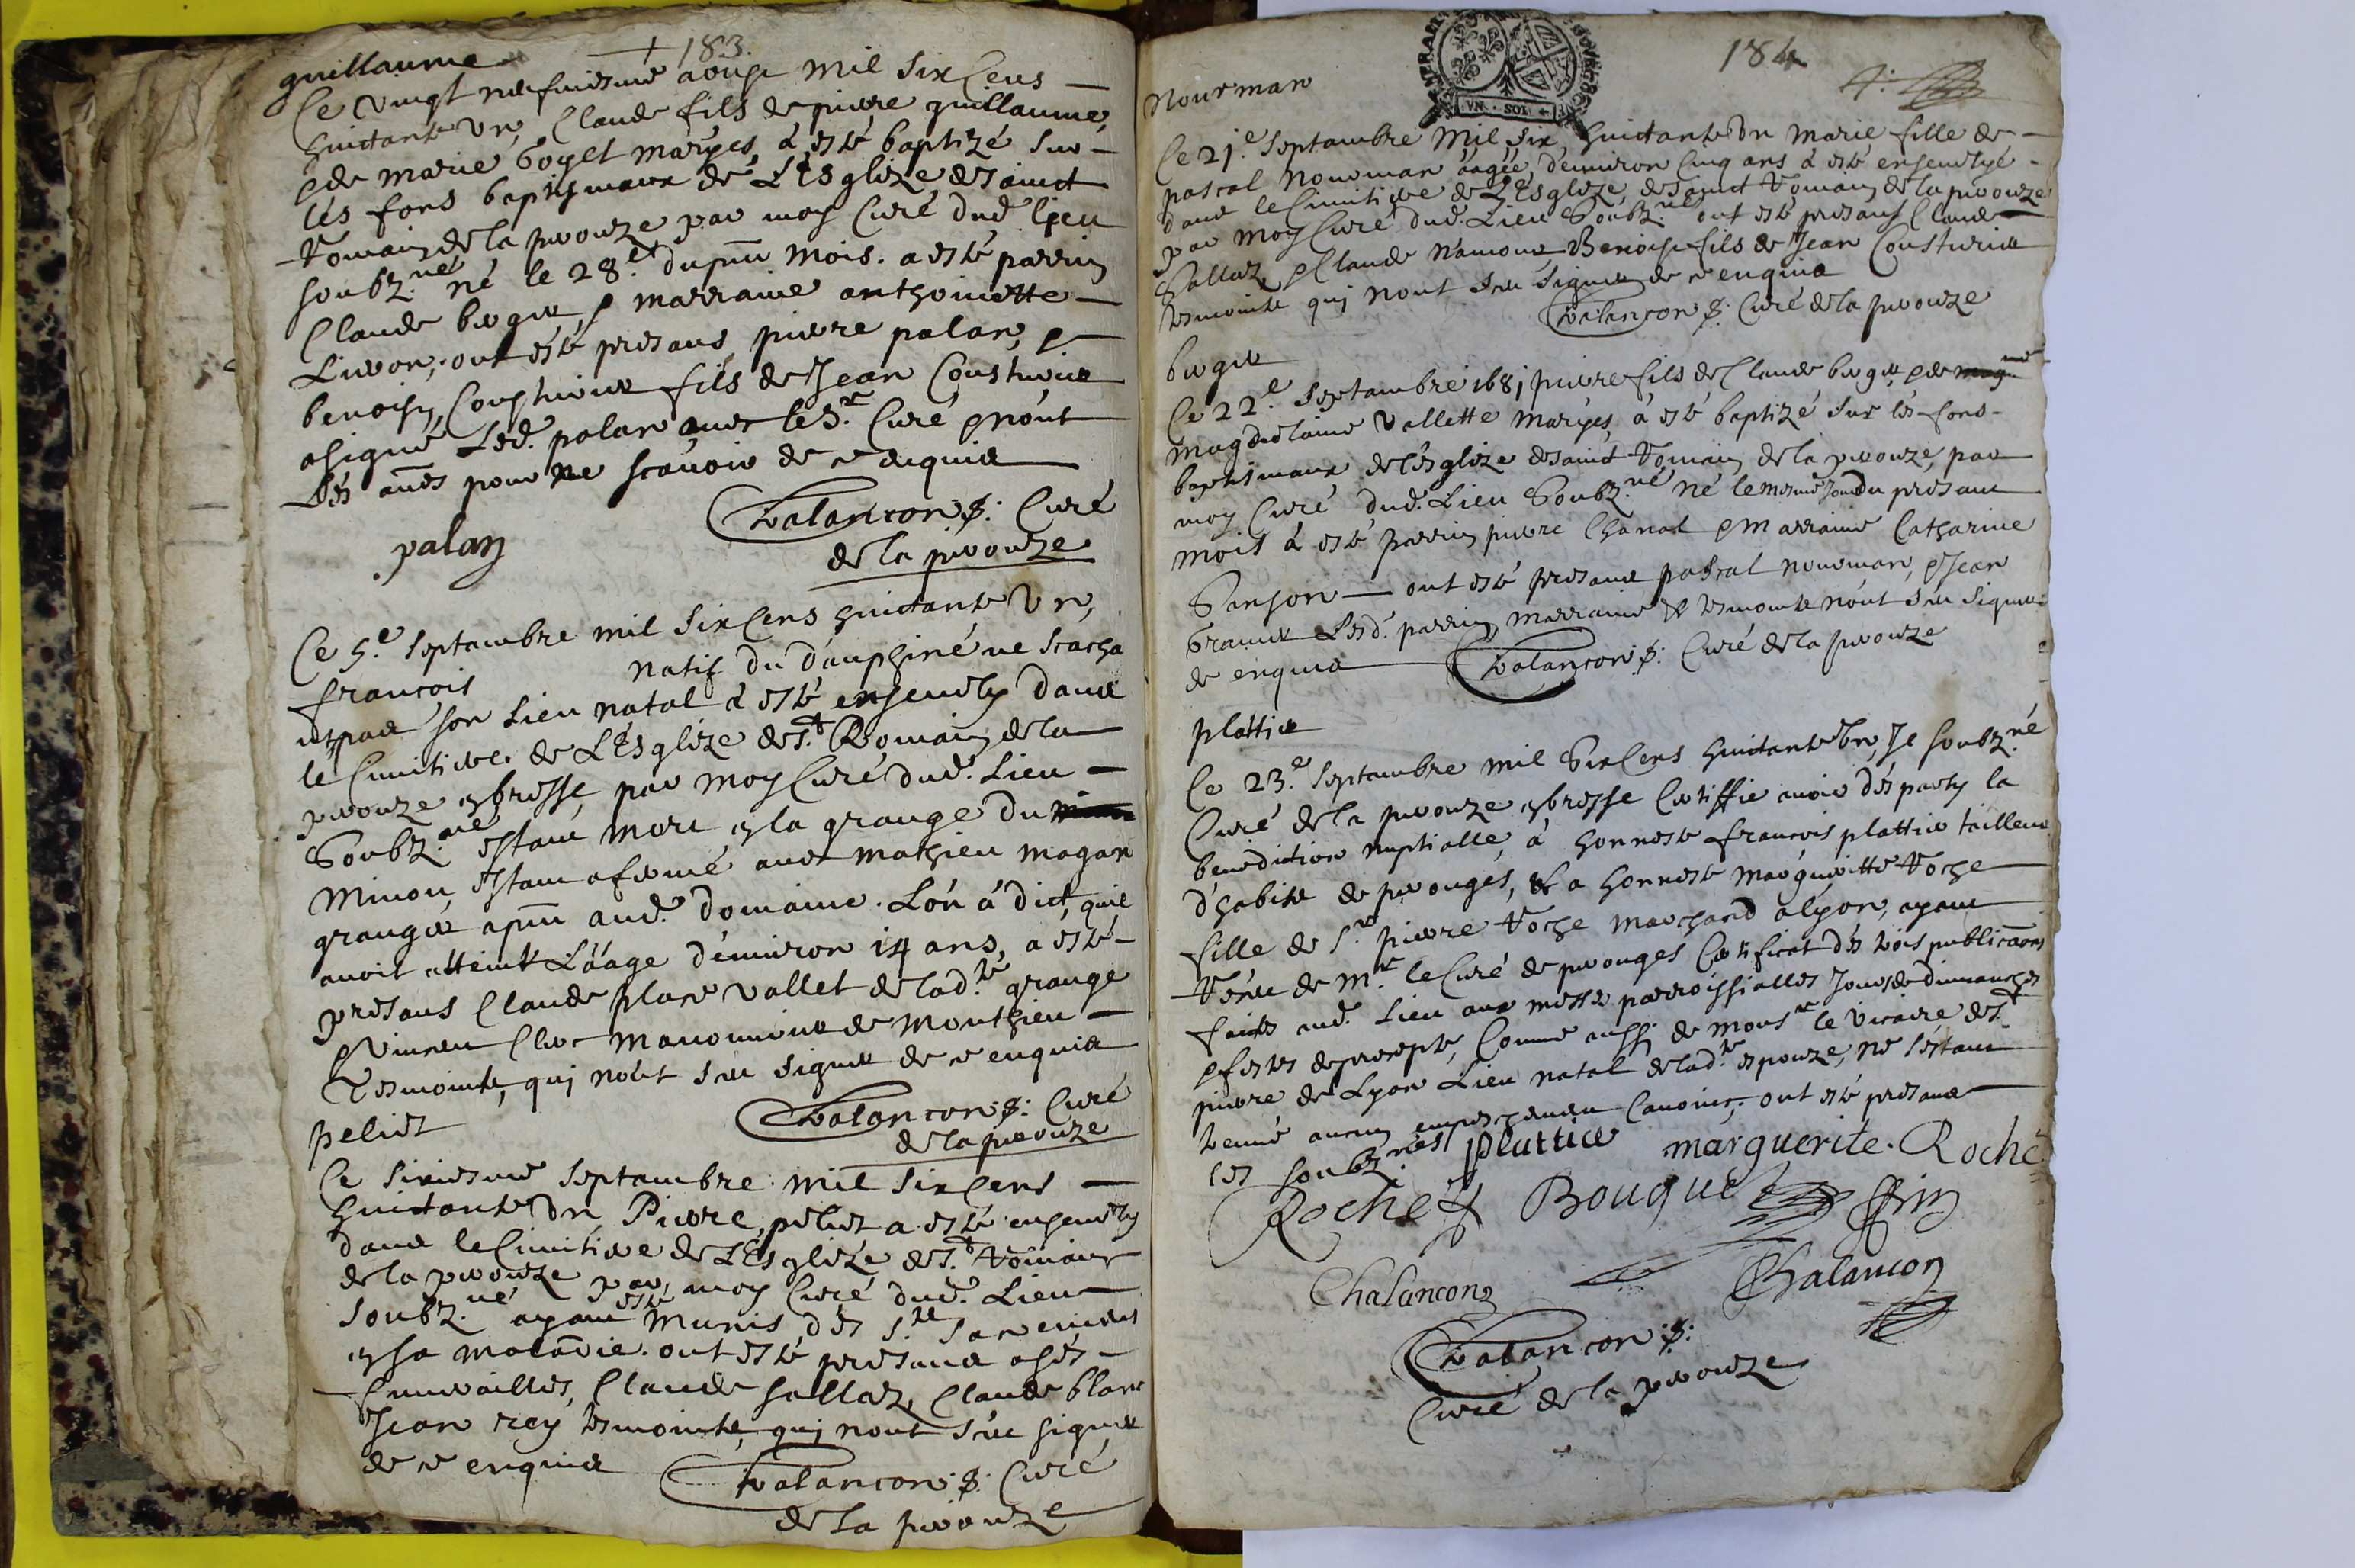 guillaume
+ 183.
Ce vingt neufuiesme aoust mil six Cens
huictante Un, Claude fils de pierre guillaume,
& de marie goyet mariés, à esté baptizé sur
lés fons baptismaux de L'Esglize de sainct
Romain de la peyrouze par moy Curé dud. lieu
soubz.né né le 28.e du pnt mois. a esté parrin
Claude berger & marraine anthoinette
Livon, ont esté presans pierre palan, &
benoist Cousturier fils de Jean Cousturier
a signé Led. palan avec le S.r Curé & n'ont
Lés aues pour ne scavoir de ce enquis
palan
Chalancon p: Curé
de la peyrouze
Ce 5.e septambre mil six Cens huictante Un,
francois natif du dauphiné ne scacha
nt pas son Lieu natal à esté ensevely dans
le Cimitiere de L'Esglize de S.t Romain de la
perouze en bresse, par moy Curé dud. Lieu
Soubz.né estant mort en la grange du
Minou, estant afermé avec mathieu magan
granger a pnt aud. domaine. L'on à dict, quil
avoit atteint L'áage d'environ 14 ans, a esté
presans Claude plane vallet de lad.te grange
& Vincen Clerc manouvrier de monthieu
Tesmoints, qui n'ont sçeu signer de ce enquis
Chalancon p: Curé
de la perouze
peliet
Ce sixiesme septambre mil six Cens
huictante Un Pierre peliet a esté ensevely
dans le Cimitiere de L'Esglize de S.t Romain
de la perouze par moy Curé dud. Lieu
soubz.né ayant esté munis dés S.ts Sacremens
en sa maladie. ont esté presans à ses
funerailles, Claude sallaz, Claude blanc
Jean rey tesmoints, qui n'ont sçeu signer
de ce enquis
Chalancon p: Curé
de la perouze
184
VN · SOL
nourman
Ce 21.e septambre mil six huictante Un marie fille de
pascal nourman áagée d'environ Cinq ans à esté ensevelye
dans le Cimitiere de L'Esglize de sainct Romain de la perouze
par moy Curé dud. Lieu Soubz.né ont esté presans Claude
Sallaz, & Claude Ramour Benoist fils de Jean Cousturier
tesmoints qui n'ont sçeu signer de ce enquis
Chalancon p: Curé de la perouze
berger
Ce 22.e septambre 1681 pierre fils de Claude berger, & de
magdelaine Vallette mariés, à esté baptizé sur lés fons
baptismaux de l'ésglize de sainct Romain de la perouze, par
moy Curé dud. Lieu Soubz.né né le mesme Jour du presant
mois à esté parrin pierre Chanal & marraine Catharine
Sanson — ont esté presans pascal nourman, & Jean
Granier Lesd. parrin, marraine & tesmoints n'ont sçeu signer
de enquis
Chalancon p: Curé de la perouze
plattier
Ce 23.e septambre mil Six Cens huictante Un, Je soubz.né
Curé de la perouze en bresse Certiffie avoir désparty la
benediction nuptialle, à honneste francois plattier tailleur
d'habits de perouges, & a honneste margueritte Roche
fille de S.r pierre Roche marchand a lyon, ayant
Réceu de M.r le Curé de perouges Certificat dés trois publicaons
faites aud. Lieu aux messes parroissialles Jours de dimanches
& festes de precepte, Comme aussi de mons.r le vicaire de S.t
pierre de Lyon Lieu natal de lad.te espouze, ne sestant
treuvé aucun empeschemen Canonic. ont esté presans
les soubz.nés
Plattier marguerite. Roche
Roche Bouquet
Chalancon Chalancon
Chalancon p:
Curé de la perouze